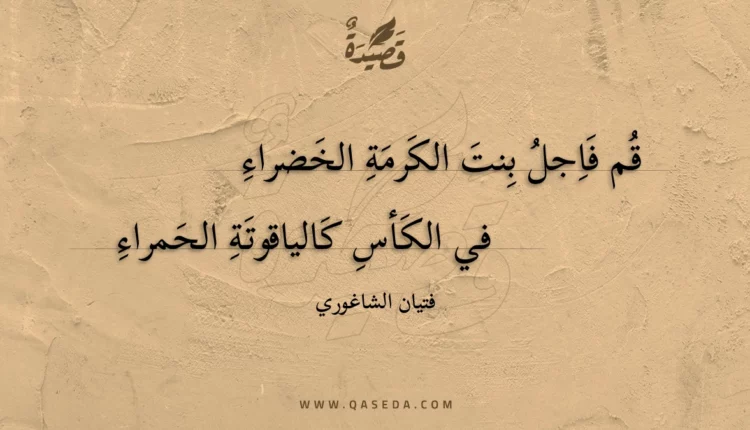 قَصِيْدَةٌ
قُم فَاِجلُ بِنتَ الكَرمَةِ الخَضراءِ
في الكَأسِ كَالياقوتَةِ الحَمراءِ
فتيان الشاغوري
WWW.QASEDA.COM